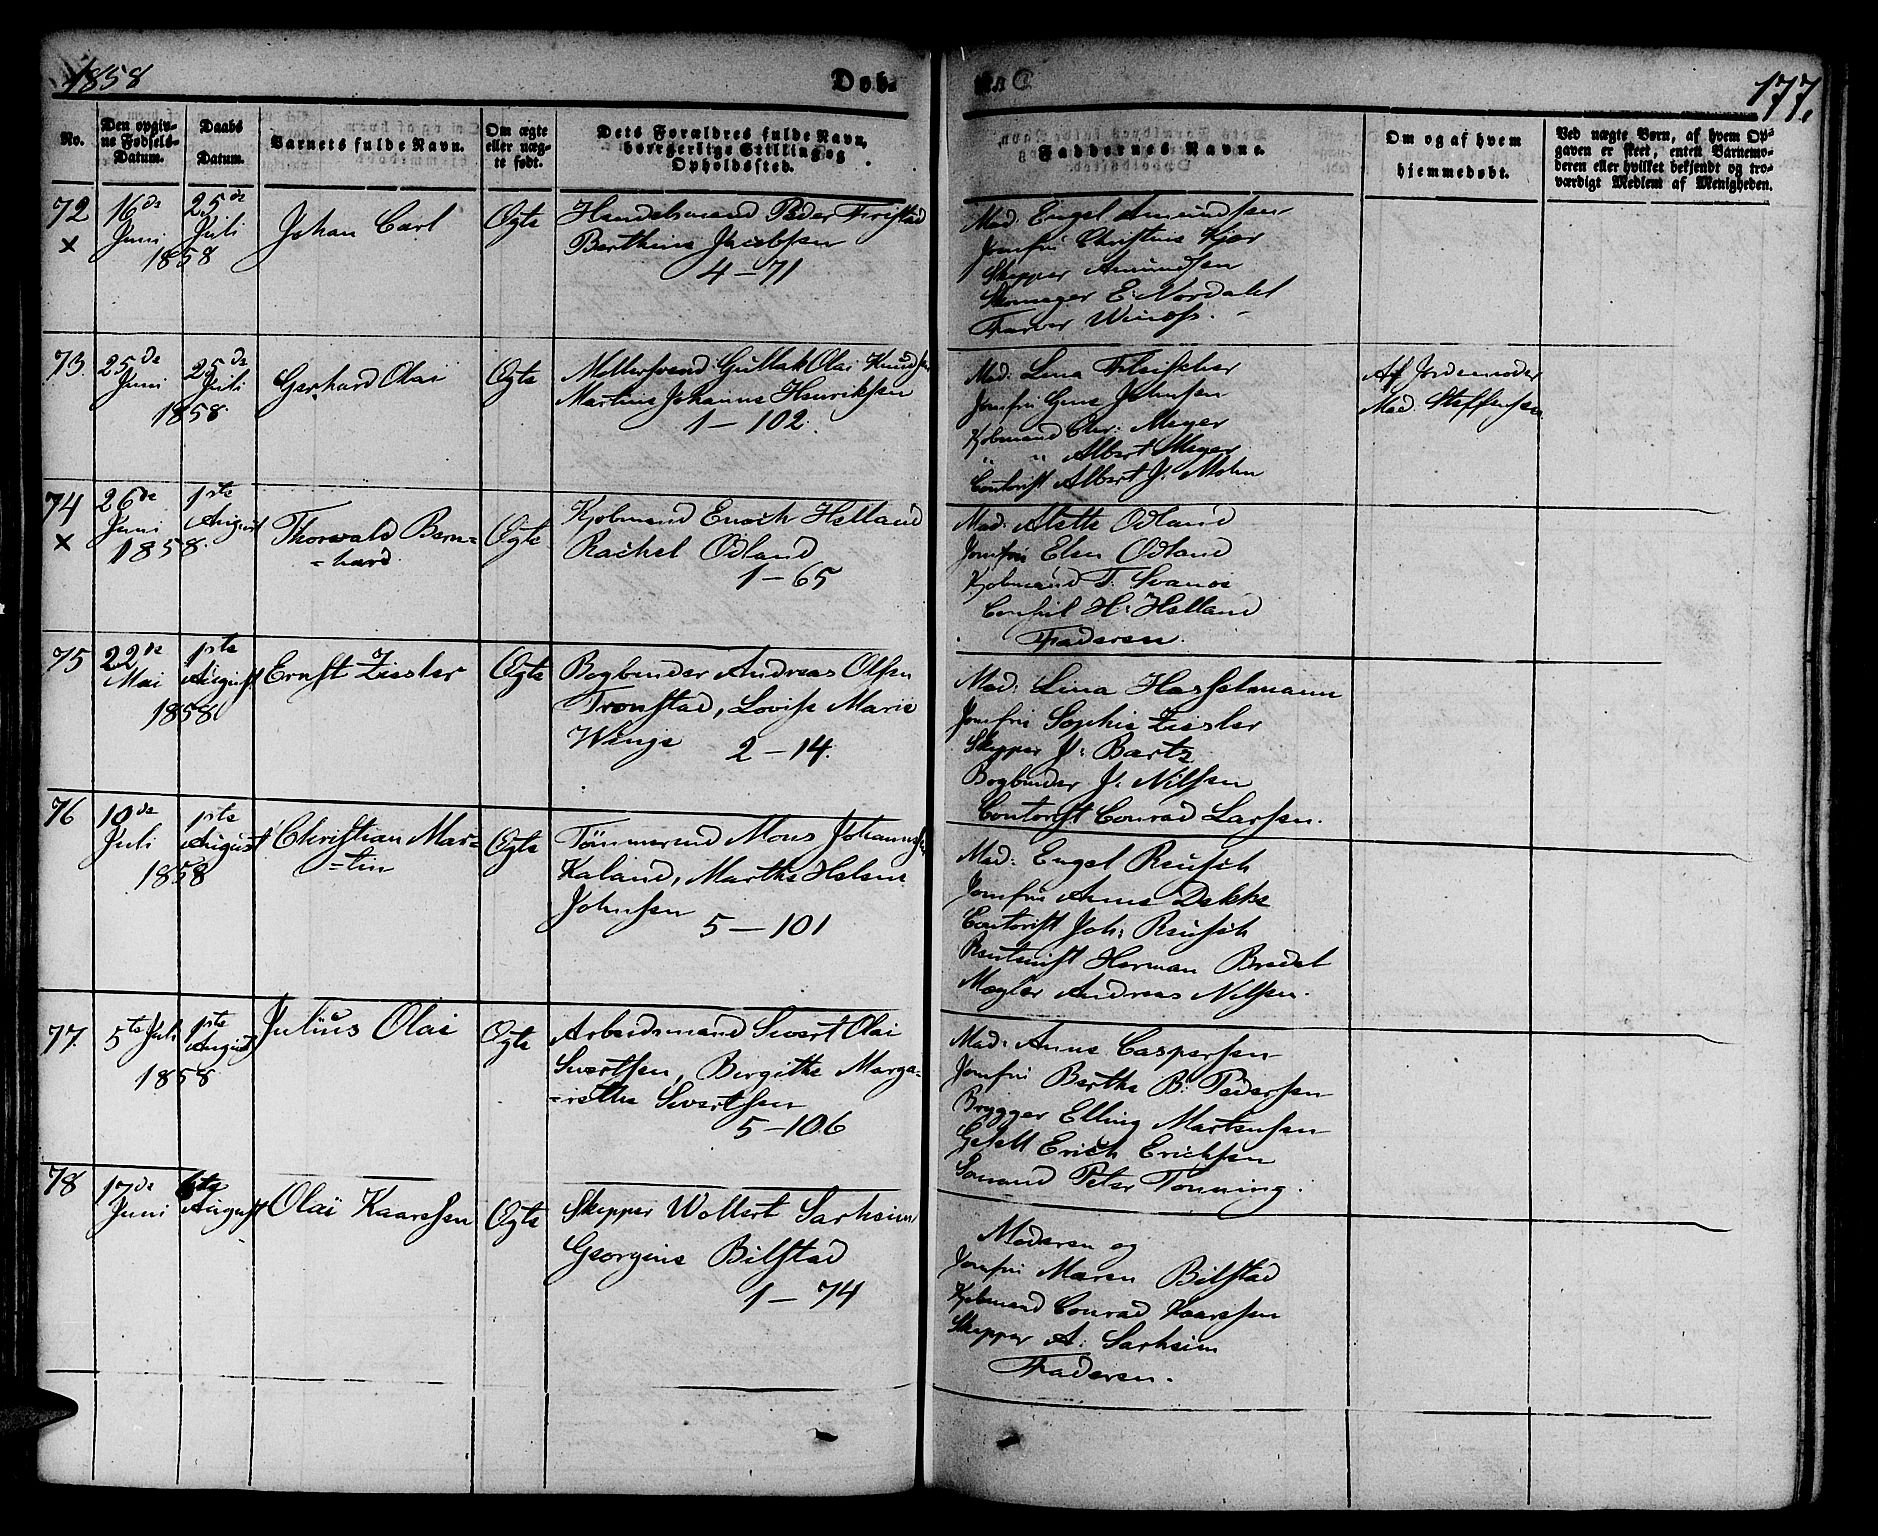 1858
Døb-
te.
177.
No.
Den opgiv-
ne Fødsels-
Datum.
Daabs
Datum.
Barnets fulde Navn.
Om ægte
eller uæg-
te født.
Dets Forældres fulde Navn,
borgerlige Stilling og
Opholdssted.
Faddernes Navne.
Om og af hvem
hjemmedøbt.
Ved uægte Børn, af hvem Op-
gaven er skeet, enten Barnemo-
deren eller hvilket bekjendt og tro-
værdigt Medlem af Menigheden.
72
x
16de
Juni
25de
Juli
1858
Johan Carl
Ægte
Handelsmand Peder Fristad
Berthine Jacobsen
4 – 71
Mad: Engel Amundsen
Jomfru Christine Kjær
Skipper Amundsen
Skomager E. Nordahl
Farver
73.
25de
Juni
25de
Juli
1858.
Gerhard Olai
Ægte
Møllersvend Gullak Olai Knudsen
Martine Johanne Henriksen
1 – 102.
Mad: Lina Fleischer
Jomfru Johnsen
Kjøbmand Chr: Meyer
" " Albert Meyer
Contorist Albert J. Mohn
Af Jordemoder
Mad. Steffensen
74
x
26de
Juni
1ste
August
1858.
Thorvald Bern=
=hard.
Ægte
Kjøbmand Enoch Helland
Rachel Odland
1 – 65
Mad: Alette Odland
Jomfru Elen Odland
Kjøbmand T. Svanøe
Consul H. Helland
Faderen.
75
22de
Mai
1ste
August
1858
Ernst Ziesler
Ægte
Bogbinder Andreas Olsen
Tronstad, Lovise Marie
Winje 2 – 14.
Mad: Lina Hasselmann
Jomfru Sophie Ziesler
Skipper J. Bartz
Bogbinder J. Nilsen
Contorist Conrad Larsen.
76
10de
Juli
1ste
August
1858
Christian Mar=
=tin
Ægte
Tømmermd Mons Johannes
Kaland, Marthe Helene
Johnsen
5 – 101
Mad: Engel Reusch
Jomfru Anne Dekke
Contorist Joh: Reusch
Herman Bredal
Mægler Andreas Nilsen.
77.
5te Juli
1ste
August
1858
Julius Olai
Ægte
Arbeidsmand Sivert Olai
Sivertsen, Birgithe Marga=
=rethe Sivertsen
5 – 106
Mad: Anne Caspersen
Jomfru Berthe B. Pedersen
Brygger Elling Martensen
Gesell Erich Erichsen
Sømand Peter Tønning.
78
17de
Juni
6te
August
Olai Kaarsen
Ægte
Skipper Wollert Sarheim
Georgine Bilstad
1 – 74
Moderen og
Jomfru Maren Bilstad
Kjøbmand Conrad Kaarsen
Skipper A. Sarheim
Faderen.